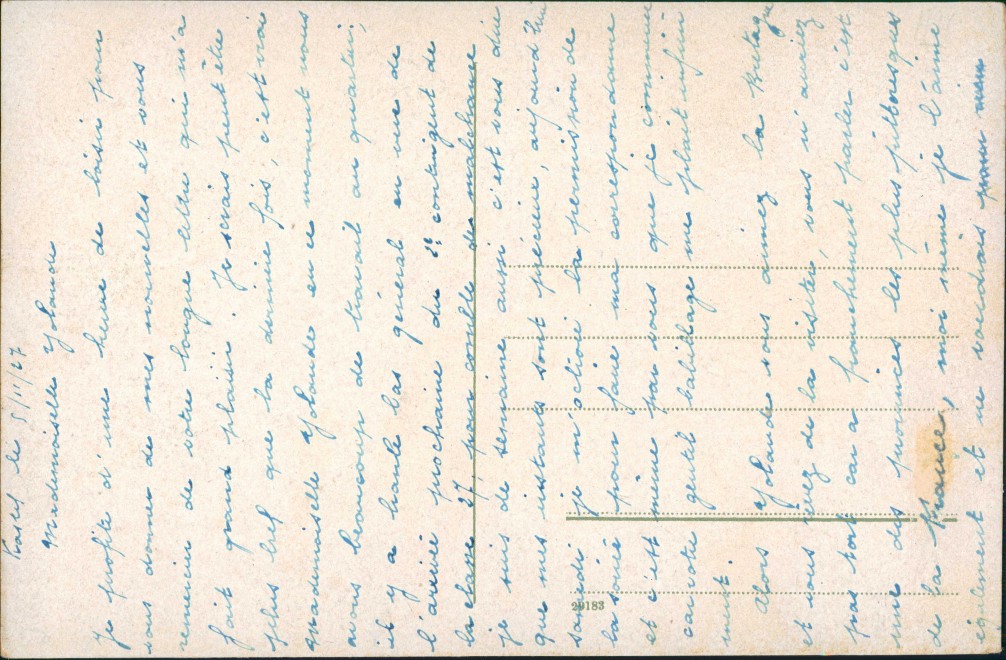 Kassel le 5/11/27
Mademoiselle Yolande
Je profite d'une heure de loisir pour
vous donner de mes nouvelles et vous
remercier de votre longue lettre qui m'a
fait grand plaisir. Je serais peut être
plus bref que la dernière fois, c'est vrai
mademoiselle Yolande en ce moment nous
avons beaucoup de travail au quartier,
il y a branle bas général en vue de
l'arrivée prochaine du 2e contingent de
la classe 27, pour comble de malchance
je suis de semaine aussi c'est vous dire
que mes instants sont précieux, aujourd'hui
samedi je m'octroie la permission de
la soirée pour faire ma correspondance
et c'est même par vous que je commence
car votre gentil babillage me plait infini-
ment.
Alors Yolande vous aimez la Bretagne
et vous rêvez de la visiter, vous n'auriez
pas tort car franchement parler c'est
une des provinces les plus pittoresques
de la France, moi même je l'aime
également et ne voudrais pour rien
29183